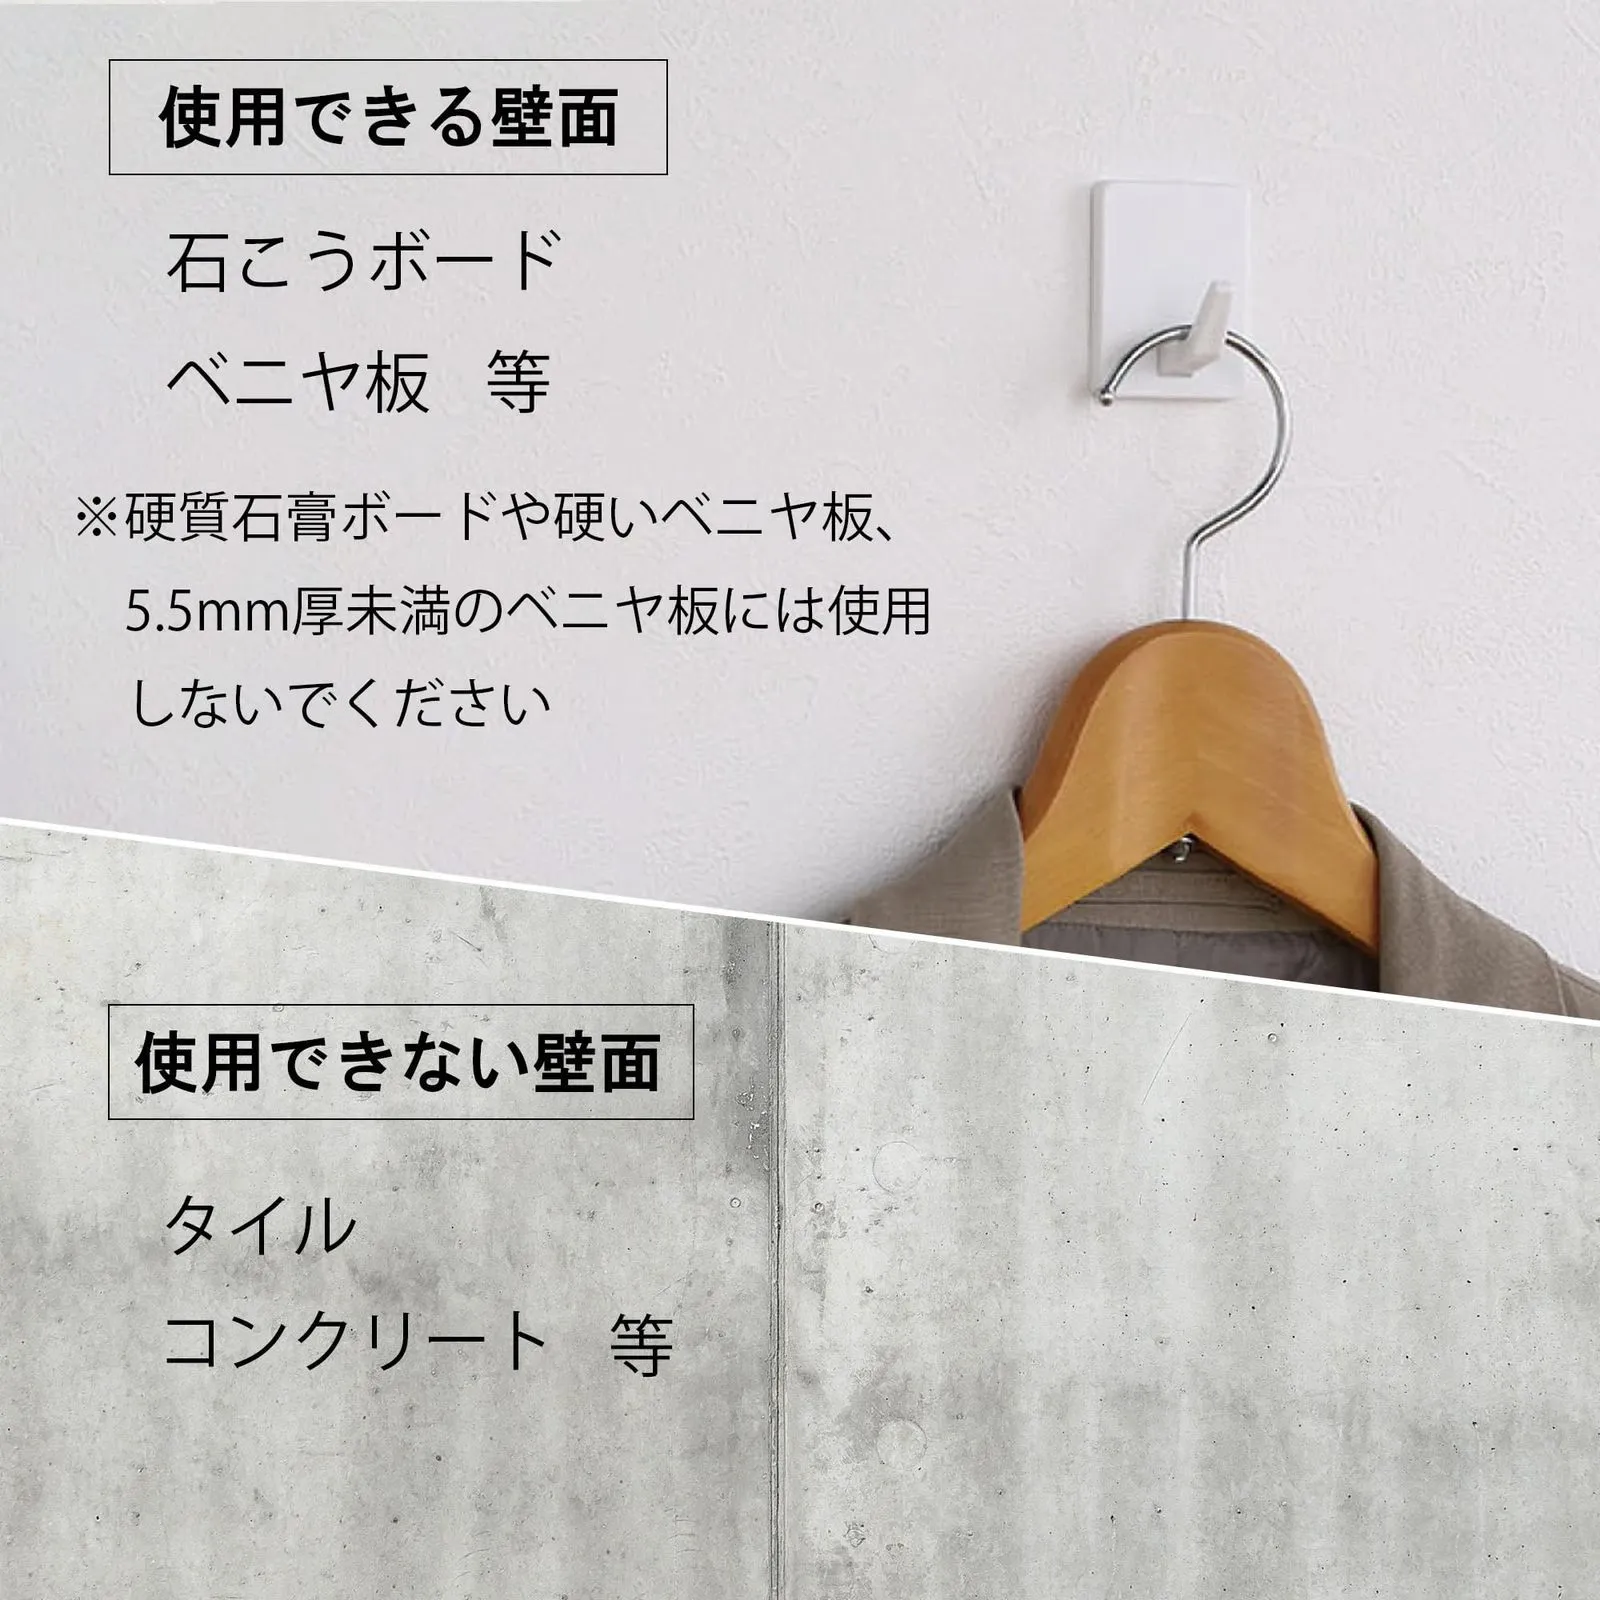 使用できる壁面
石こうボード
ベニヤ板　等
※硬質石膏ボードや硬いベニヤ板、
5.5mm厚未満のベニヤ板には使用
しないでください
使用できない壁面
タイル
コンクリート　等